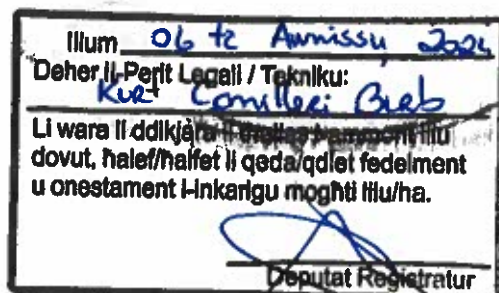 Illum 06 ta Awwissu 2024
Deher il-Perit Legali / Tekniku:
Kurt Camilleri Bieb
Li wara li ddikjara li tħallas kammont lilu
dovut, ħalef/ħalfet li qeda/qdiet fedelment
u onestament l-inkarigu mogħti lilu/ha.
Deputat Reġistratur